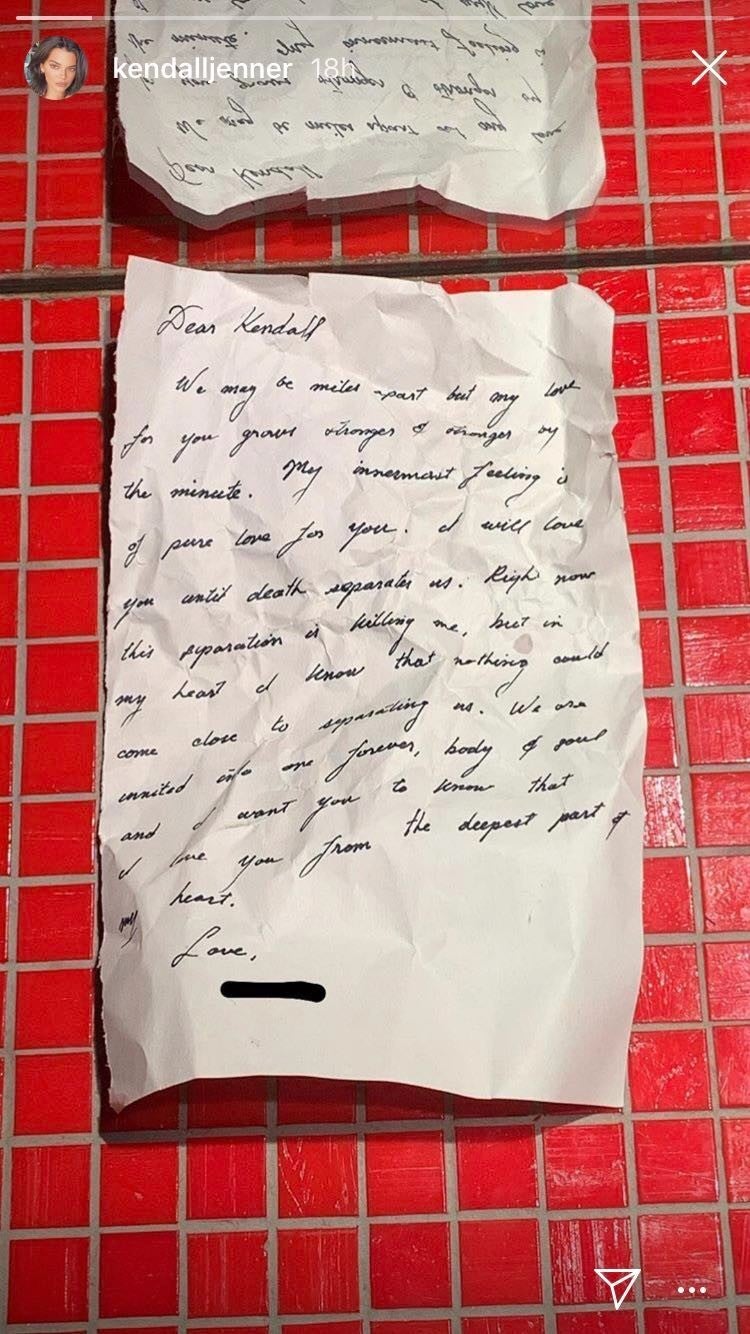 kendalljenner 18h
Dear Kendall
We may be miles apart but my love
for you grows stronger & stronger by
the minute. My innermost feeling is
of pure love for you. I will love
you until death separates us. Right now
this separation is killing me, but in
my heart I know that nothing could
come close to separating us. We are
united into one forever, body & soul
and I want you to know that
I love you from the deepest part of
my heart.
Love,